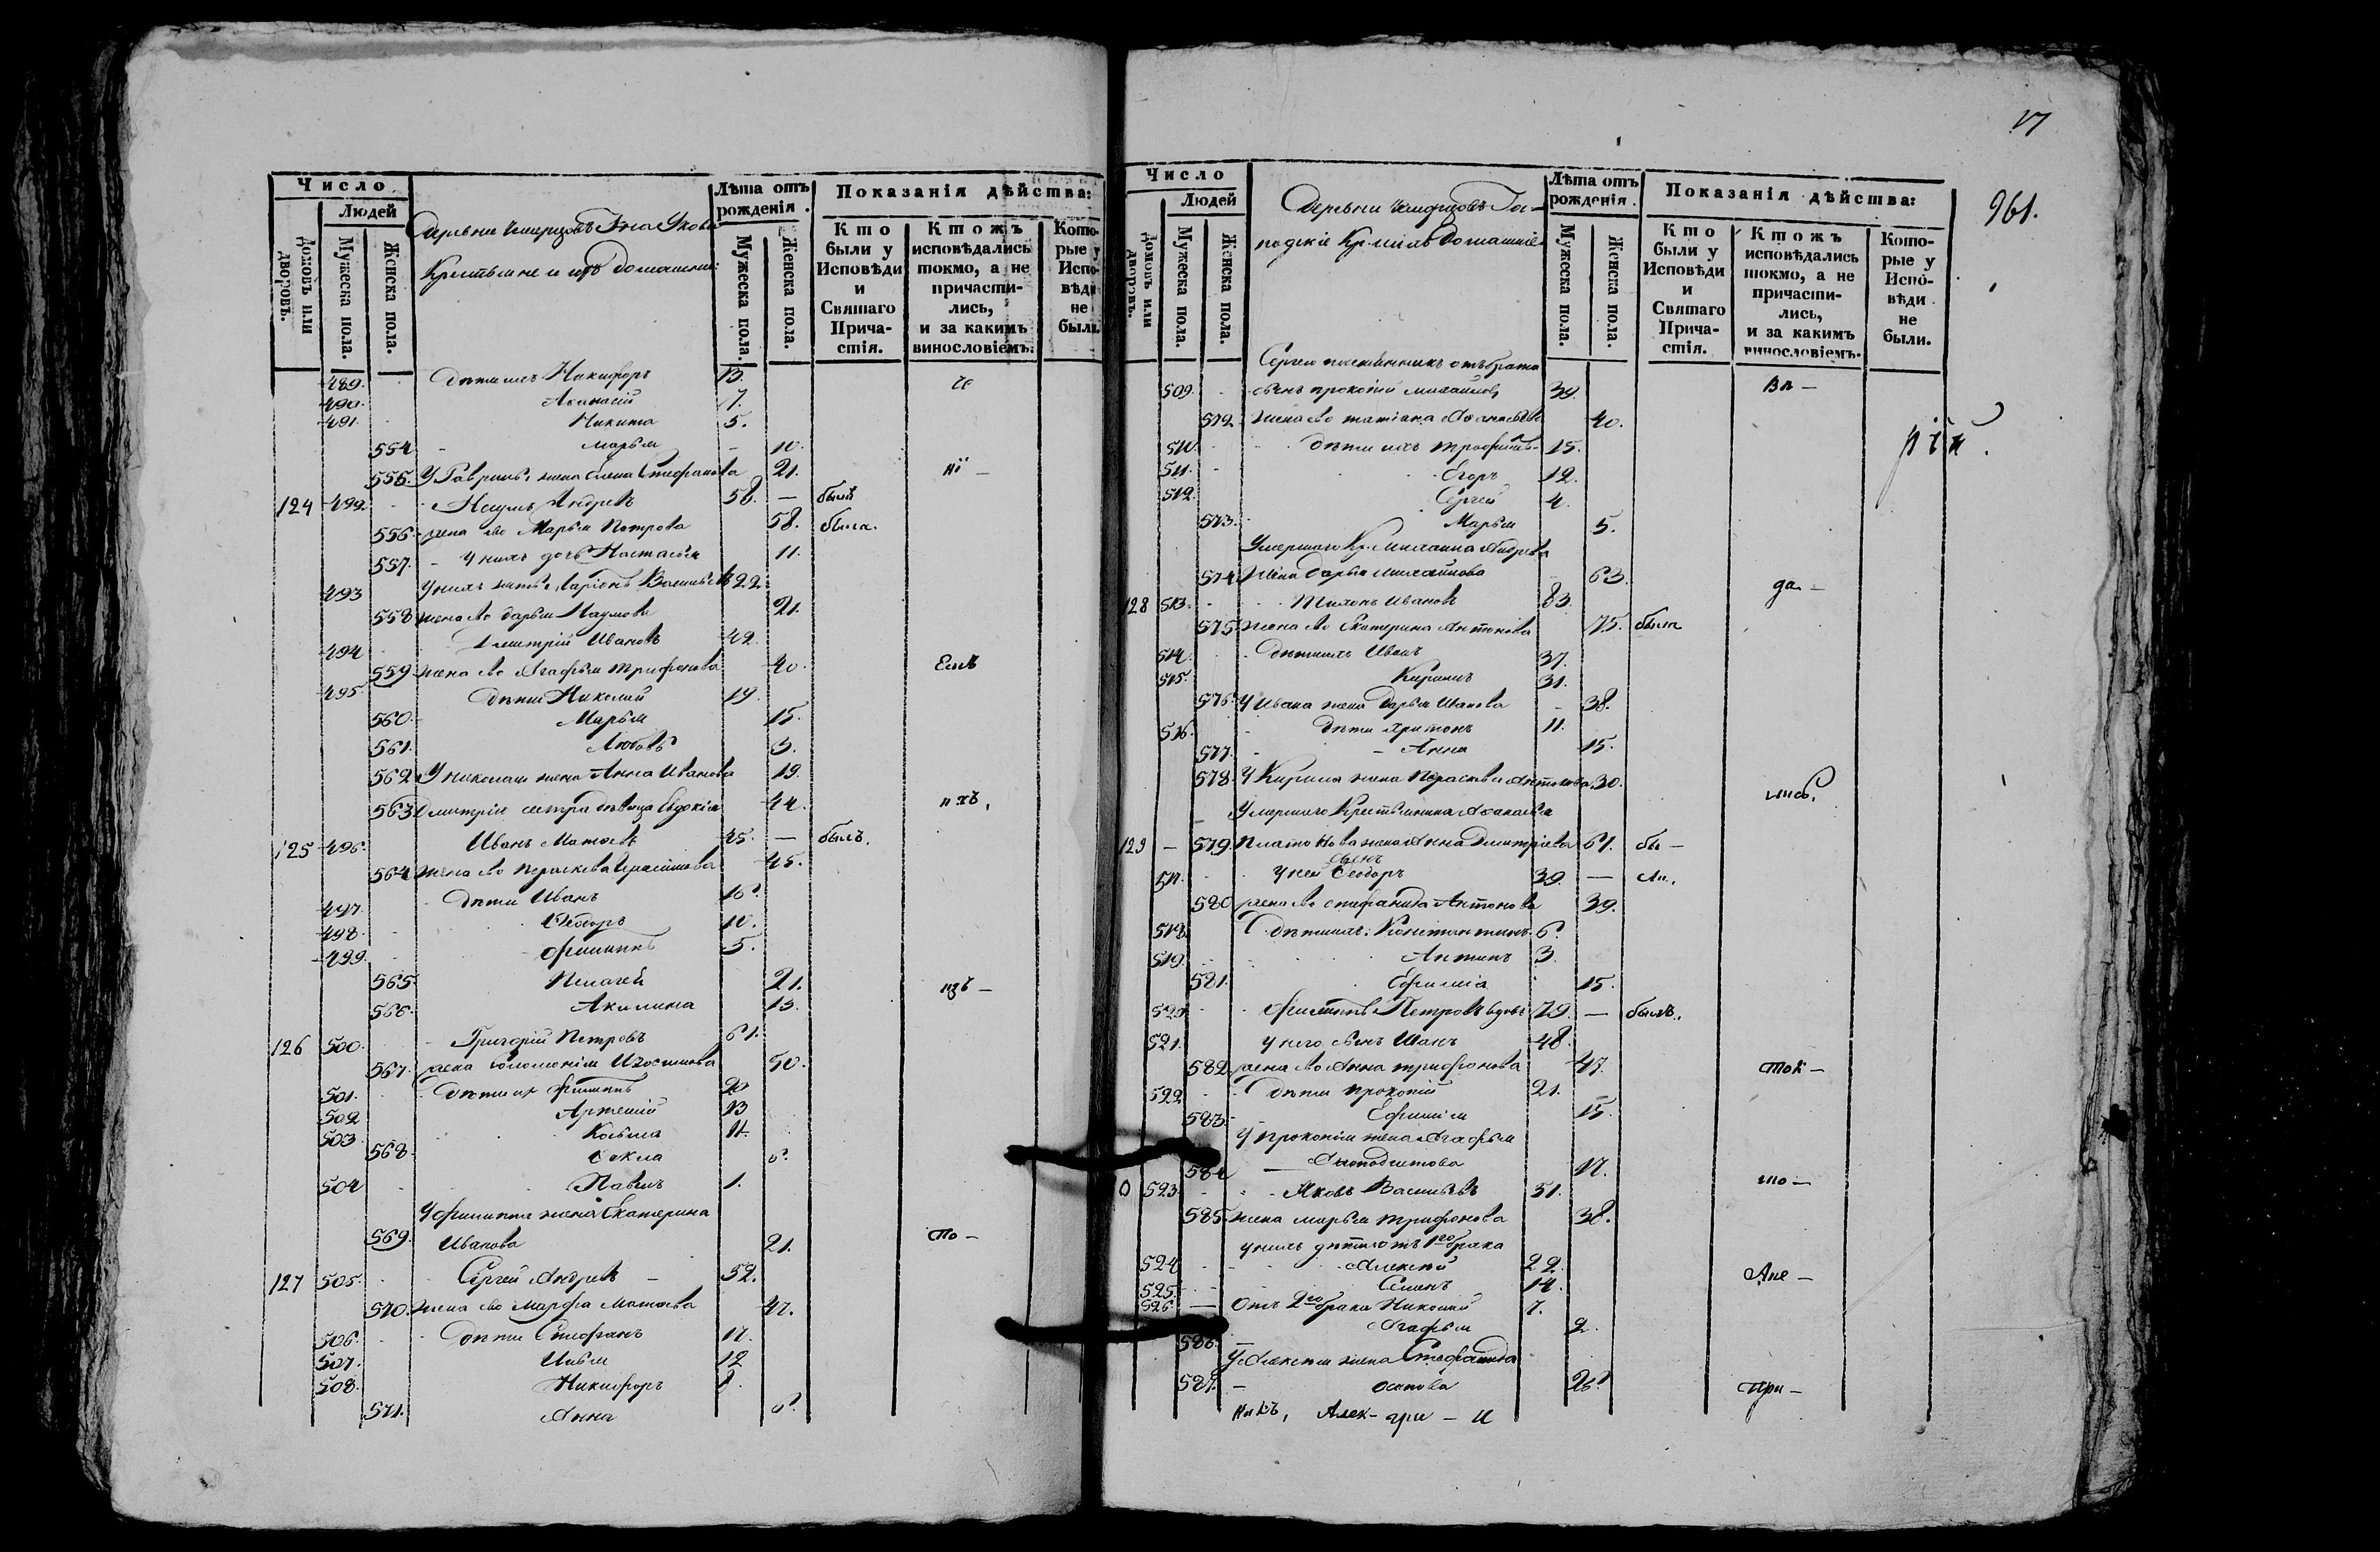 Число
Людей
домовъ или дворовъ.
Мужеска пола.
Женска пола.
Деревни
Крестьяне и ихъ домашнии
Лѣта отъ рожденія.
Мужеска пола.
Женска пола.
Показанія дѣйства:
Кто были у Исповѣди и Святаго Причастія.
Ктожъ исповѣдались токмо, а не причастились, и за какимъ винословіемъ.
Которые у Исповѣди не были.
489. дѣти ихъ Никифоръ 13.
490. Афанасій 7.
491. Никита 5.
554 Марья 10.
555. У Гаврилы жена Елена Стефанова 21.
124 492. Наумъ Андреевъ 58. — былъ
556 жена его Марья Петрова 58. была.
557. у нихъ дочь Настасья 11.
493 у нихъ зять Ларіонъ Васильевъ 22.
558 жена его Дарья Наумова 21.
494 Дмитрій Ивановъ 42.
559 жена его Агафья Трифонова 40.
495. дѣти Николай 19.
560. Марья 15.
561. Любовь 3.
562 У Николая жена Анна Иванова 19.
563 Дмитрія сестра дѣвица Евдокія 44.
125 496. Иванъ Матвѣевъ 45. — былъ.
564 жена его Парасковья Герасимова 45.
497. дѣти Иванъ
498. Ѳедоръ 10.
499. Филиппъ 5.
565. Пелагея 21.
566. Акилина 13.
126 500. Григорій Петровъ 61.
567. жена Соломонія 50.
501. дѣти их Филиппъ 20
502 Артемій 13
503. Козьма 11.
568. Ѳекла
504 Павелъ 1.
У Филиппа жена Екатерина
569. Иванова 21.
127 505. Сергей Андреевъ — 52.
570. жена его Марфа Матвѣева 47.
506. дѣти Стефанъ 17.
507. Илья 12
508. Никифоръ
571. Анна
17
961.
Число
Людей
домовъ или дворовъ.
Мужеска пола.
Женска пола.
Деревни
Лѣта отъ рожденія.
Мужеска пола.
Женска пола.
Показанія дѣйства:
Кто были у Исповѣди и Святаго Причастія.
Ктожъ исповѣдались токмо, а не причастились, и за какимъ винословіемъ.
Которые у Исповѣди не были.
Сергея племянникъ отъ брата
509. сынъ Прокопій Михайловъ 39.
572. жена его Татіана Афанасьева 40.
510. дѣти ихъ Трофимъ 15.
511. Егоръ 12.
512. Сергей 4.
573. Марья 5.
Умершаго Кр. Михаила Андреева
574 жена Дарья Михайлова 63.
128 513. Тихонъ Ивановъ 83.
575 жена его Екатерина Антонова 75. была
514. дѣти ихъ Иванъ 37.
515. Кирилъ 31.
576. У Ивана жена Дарья Иванова 38.
516. дѣти Харитонъ 11.
577. Анна 15.
578. У Кирила жена Параскева Антонова 30.
Умершаго Крестьянина Афанасья
129 — 579. Платонова жена Анна Дмитріева 61. бы —
У ней сынъ Ѳеодоръ 39. — ли.
580 жена его Стефанида Антонова 39.
518. дѣти ихъ: Константинъ 6.
519. Антипъ 3.
581. Ефимія 15.
520. Филиппъ Петровъ вдовъ 79. — былъ.
521. у него сынъ Иванъ 48.
582. жена его Анна Трифонова 47.
522. дѣти Прокопій 21.
583. Ефимія 15.
У Прокопія жена Агафья
584 17.
0 523. Яковъ Васильевъ 51.
585. жена Марья Трифонова 38.
у нихъ дѣти отъ 1го брака
524. Алексѣй 22.
525. Семенъ 14.
526. — отъ 2го брака Николай 7.
586. Агафья 2.
У Алексѣя жена Стефанида
587. — Осипова